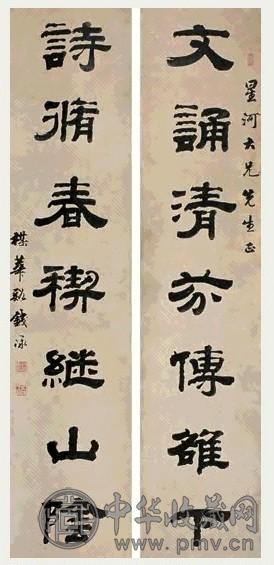 星河大兄先生正
文誦清芬傳雒下
詩脩春禊継山陰
楳華谿錢泳
中华收藏网
www.pmv.cn